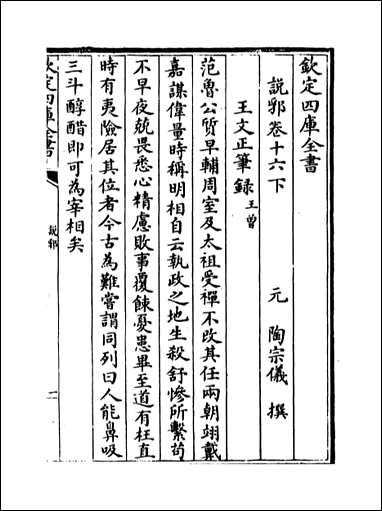 欽定四庫全書
說郛卷十六下
元 陶宗儀 撰
王文正筆録王曾
范魯公質早輔周室及太祖受禪不改其任兩朝翊戴
嘉謀偉量時稱明相自云執政之地生殺舒慘所繫苟
不早夜兢畏悉心精慮敗事覆餗憂患畢至道有枉直
時有夷險居其位者今古為難嘗謂同列曰人能鼻吸
三斗醇醋即可為宰相矣
欽定四庫全書
說郛